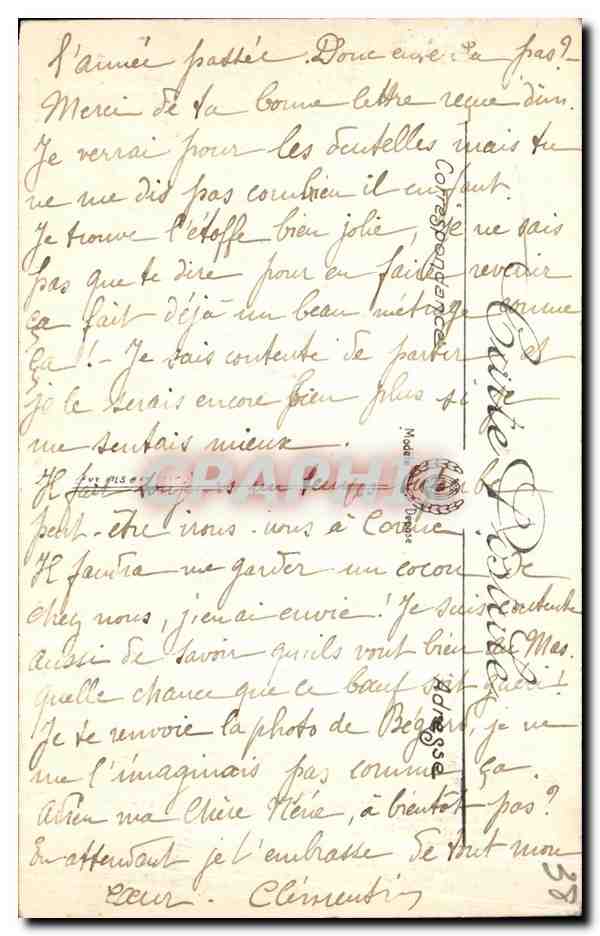 l'année passée. Donc pas?
Merci de ta bonne lettre reçue dim.
Je verrai pour les dentelles mais tu
ne me dis pas combien il en faut.
Je trouve l'étoffe bien jolie, je ne sais
pas que te dire pour en faire revenir
ça fait déjà un beau métrage comme
ça! - Je suis contente de partir et
je le serais encore bien plus si je
me sentais mieux.
Il fait toujours un temps
peut-être irons-nous à
Il faudra me garder un cocon de
chez nous, j'en ai envie! Je suis contente
aussi de savoir qu'ils vont bien au Mas.
quelle chance que ce bœuf soit guéri!
Je te renvoie la photo de je ne
me l'imaginais pas comme ça.
Adieu ma Chère Nénè, à bientôt pas?
En attendant je t'embrasse de tout mon
cœur. Clémentin
Correspondance
Carte Postale
Modèle Déposé
Adresse
CARTAPHILIE
38